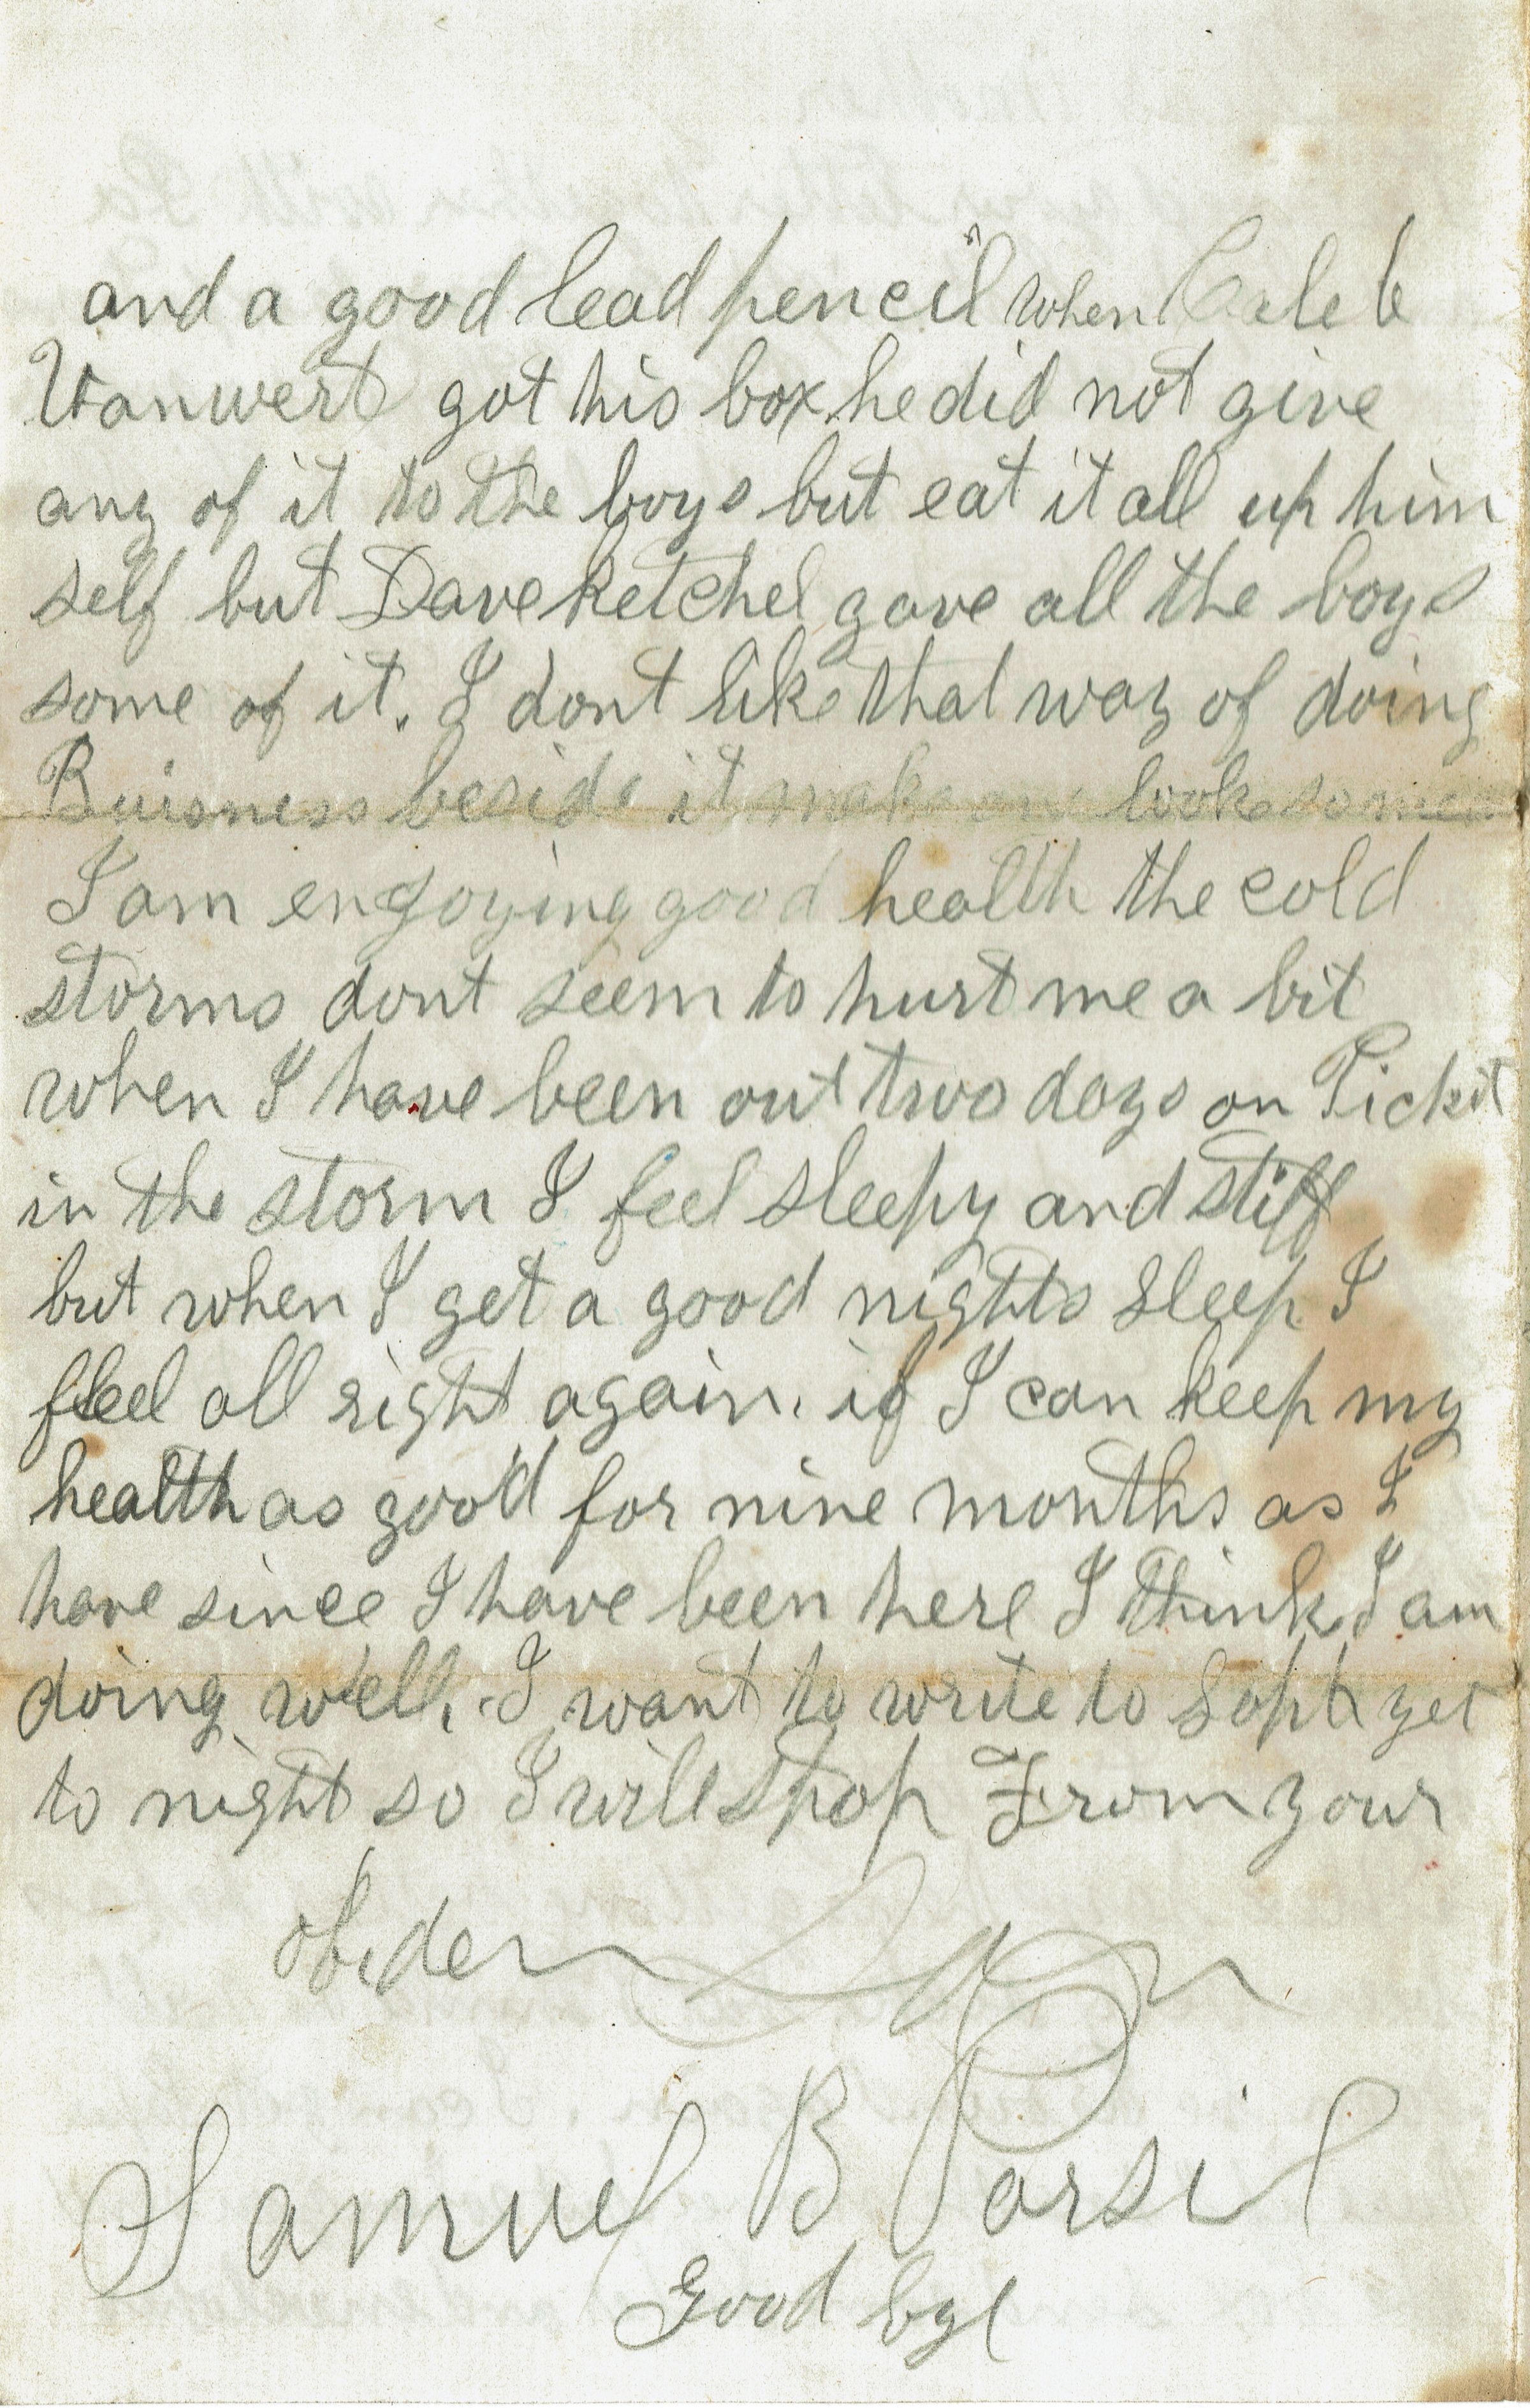 and a good lead pencil when Caleb
Vanwert got his box he did not give
any of it to the boys but eat it all up him
self but Dave ketchel gave all the boys
some of it. I dont like that way of doing
Buisness beside it make one look
I am engoying good health the cold
storms dont seem to hurt me a bit
when I have been out two days on Pickit
in the storm I feel sleepy and stiff
but when I get a good nights sleep I
feel all right again. if I can keep my
health as good for nine months as I
have since I have been here I think I am
doing well. I want to write to Soph yet
to night so I will stop From your
Samuel B Parsil
Good bye